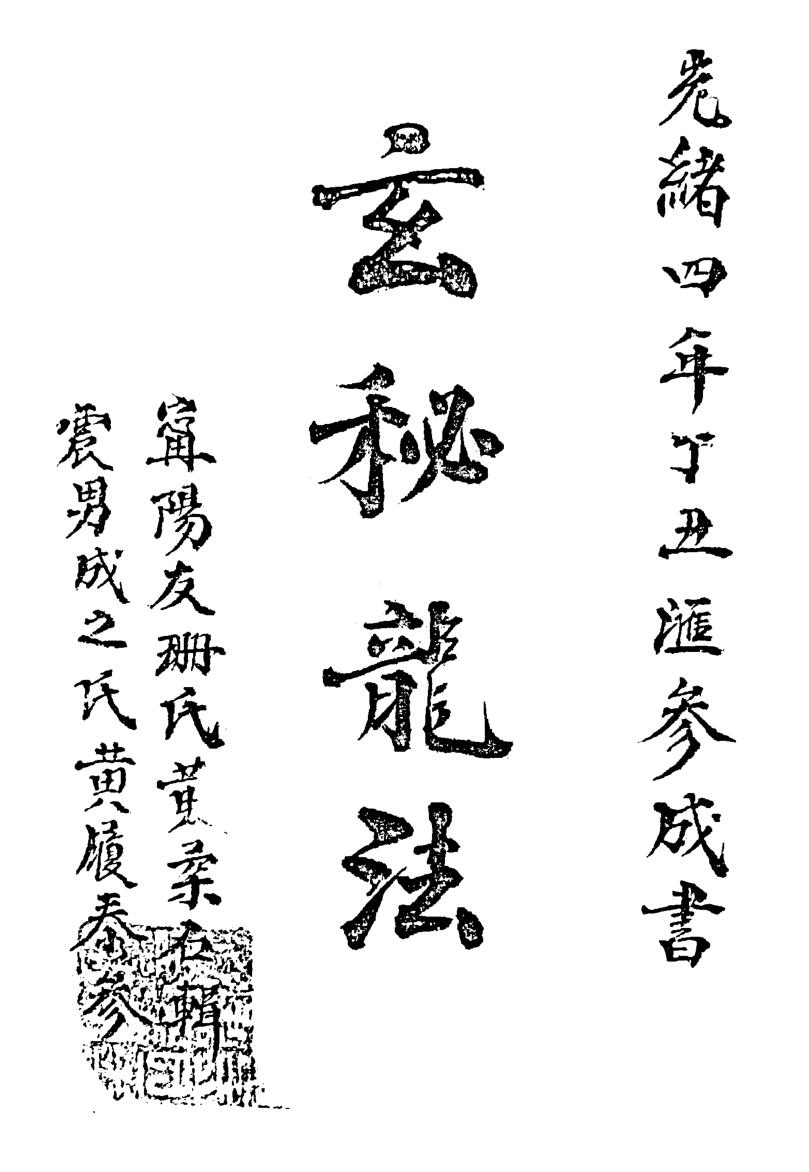 光緒四年丁丑滙參成書
玄秘龍法
甯陽友珊氏黃榮石輯
震男成之氏黃履泰參